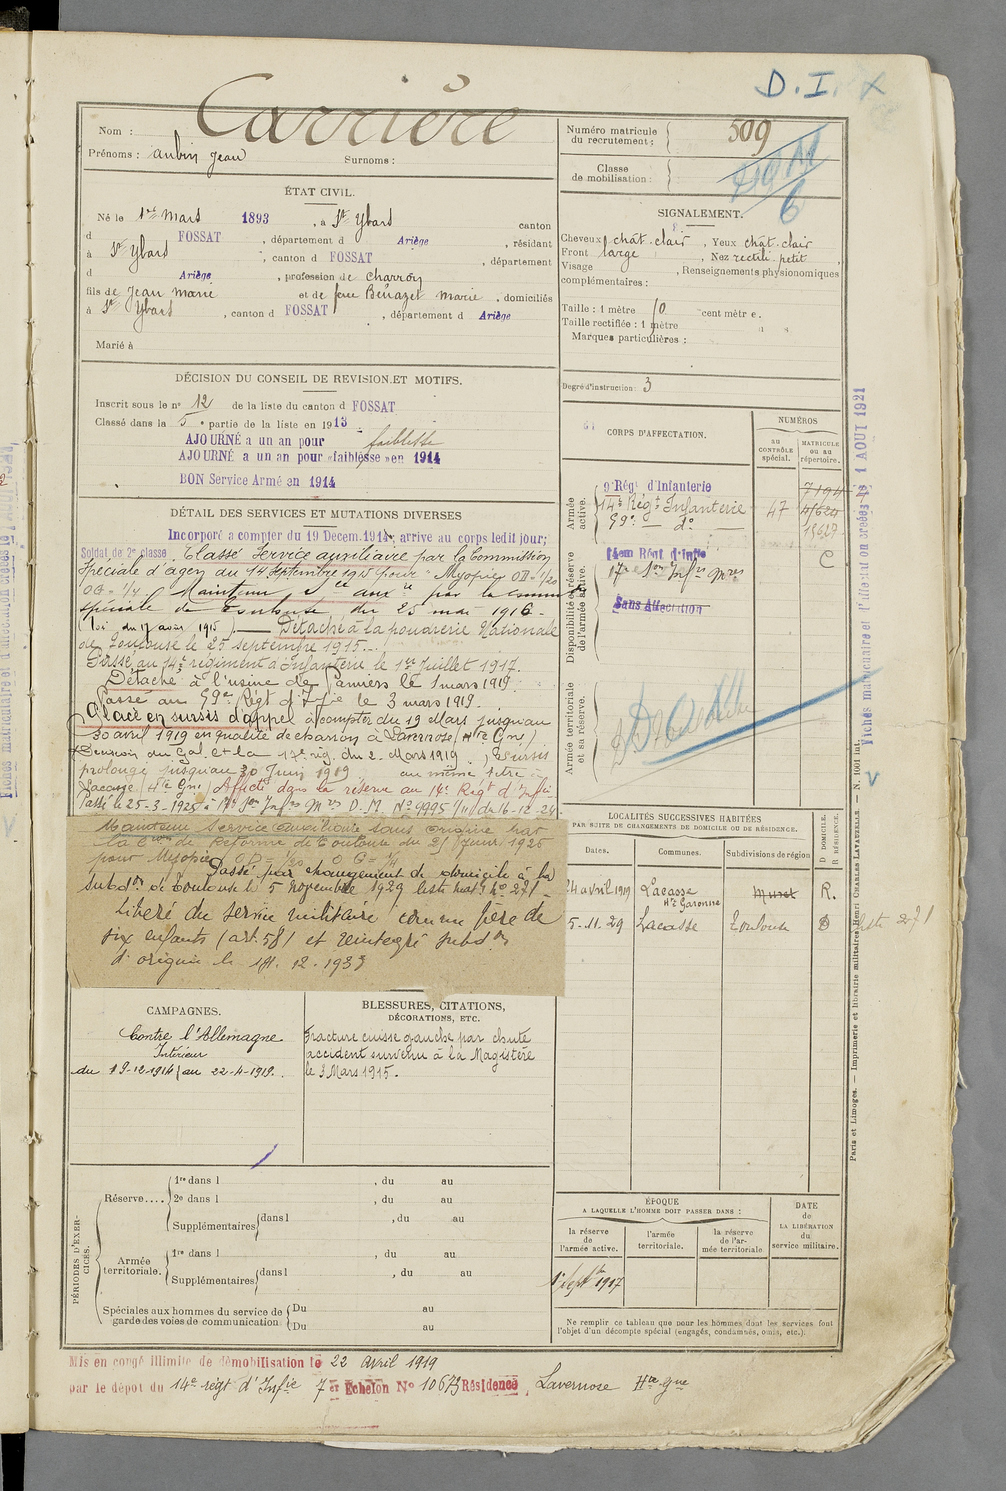 D. I. X
Carrière
Nom :
Prénoms : Aubin Jean Surnoms :
Numéro matricule du recrutement : 509
Classe de mobilisation :
ÉTAT CIVIL.
Né le 1er Mars 1893, à St Ybars canton
d FOSSAT, département d Ariège, résidant
à St Ybars, canton d FOSSAT, département
d Ariège, profession de charron
fils de Jean Marie et de feue Bénazet Marie, domiciliés
à St Ybars, canton d FOSSAT, département d Ariège
Marié à
SIGNALEMENT.
Cheveux chât. clair, Yeux chât. clair
Front large, Nez rectil. petit,
Visage , Renseignements physionomiques
complémentaires :
Taille : 1 mètre 60 centimètres.
Taille rectifiée : 1 mètre
Marques particulières :
Degré d'instruction : 3
DÉCISION DU CONSEIL DE REVISION ET MOTIFS.
Inscrit sous le no 12 de la liste du canton d FOSSAT
Classé dans la 5e partie de la liste en 1913
AJOURNÉ a un an pour faiblesse
AJOURNÉ a un an pour «faiblesse» en 1914
BON Service Armé en 1914
CORPS D'AFFECTATION.
NUMÉROS
AU CONTRÔLE spécial.
MATRICULE ou au répertoire.
Armée active.
9e Régt d'Infanterie
14e Régt Infanterie 47
59e — do —
C
Disponibilité et réserve de l'armée active.
14em Régt d'Infie
17e Son Infrs Mres
Sans Affectation
Armée territoriale et sa réserve.
DÉTAIL DES SERVICES ET MUTATIONS DIVERSES
Incorporé a compter du 19 Decem. 1914, arrive au corps ledit jour;
Soldat de 2e classe. Classé Service auxiliaire par la Commission
Spéciale d'Agen du 14 Septembre 1915 pour : Myopie OD = 1/20
OG = 1/4 Maintenu Sce auxre par la comms
spéciale de Toulouse du 25 mai 1916 -
loi du 17 août 1915). — Détaché à la poudrerie Nationale
de Toulouse le 25 septembre 1915. -
Passé au 14e régiment d'Infanterie le 1er Juillet 1917.
Détaché à l'usine de Pamiers le 1 mars 1919.
Passé au 59e Régt d'Infie le 3 mars 1919.
Placé en sursis d'appel à compter du 19 Mars jusqu'au
30 avril 1919 en qualité de charron à Lavernose (Hte Gne)
Décision du Gal Ct la 17e rég. du 2 Mars 1919, Sursis
prolongé jusqu'au 30 Juin 1919 au même titre à
Lacasse (Hte Gne) Affecté dans la réserve au 14e Régt d'Infie
Passé le 25-3-1925 à 17e Son Infrs Mres D. M. No 9995 1/11 du 16-12-24
Maintenu service auxiliaire sans origine par
la Cion de Réforme de Toulouse du
pour Myopie OD = 1/20 OG = 1/4
Passé par changement de domicile à la
subdon de Toulouse le 5 novembre 1929 liste mat. No 271
Libéré du service militaire comme père de
six enfants (art. 58) et réintégré subdon
d'origine le 12. 1933
LOCALITÉS SUCCESSIVES HABITÉES
PAR SUITE DE CHANGEMENTS DE DOMICILE OU DE RÉSIDENCE.
Dates. Communes. Subdivisions de région D DOMICILE. R RÉSIDENCE.
24 avril 1919 Lacasse Hte Garonne Muret R.
5-11-29 Lacasse Toulouse D liste 271
CAMPAGNES.
Contre l'Allemagne
Intérieur
du 19-12-1914 au 22-4-1919.
BLESSURES, CITATIONS,
DÉCORATIONS, ETC.
Fracture cuisse gauche par chute
accident survenu à la Magistère
le 3 Mars 1915.
PÉRIODES D'EXERCICES.
Réserve.... 1re dans l , du au
2e dans l , du au
Supplémentaires dans l , du au
Armée territoriale. 1re dans l , du au
Supplémentaires dans l , du au
Spéciales aux hommes du service de garde des voies de communication Du au
Du au
ÉPOQUE
A LAQUELLE L'HOMME DOIT PASSER DANS :
la réserve de l'armée active.
l'armée territoriale.
la réserve de l'armée territoriale.
DATE de LA LIBÉRATION du service militaire.
1er Septbre 1917
Ne remplir ce tableau que pour les hommes dont les services font
l'objet d'un décompte spécial (engagés, condamnés, omis, etc.).
Mis en congé illimité de démobilisation le 22 avril 1919
par le dépôt du 14e régt d'Infie 7er Echelon No 10673 Résidence, Lavernose Hte Gne
Paris et Limoges. — Imprimerie et librairie militaires Henri CHARLES-LAVAUZELLE. — N. 1001 int.